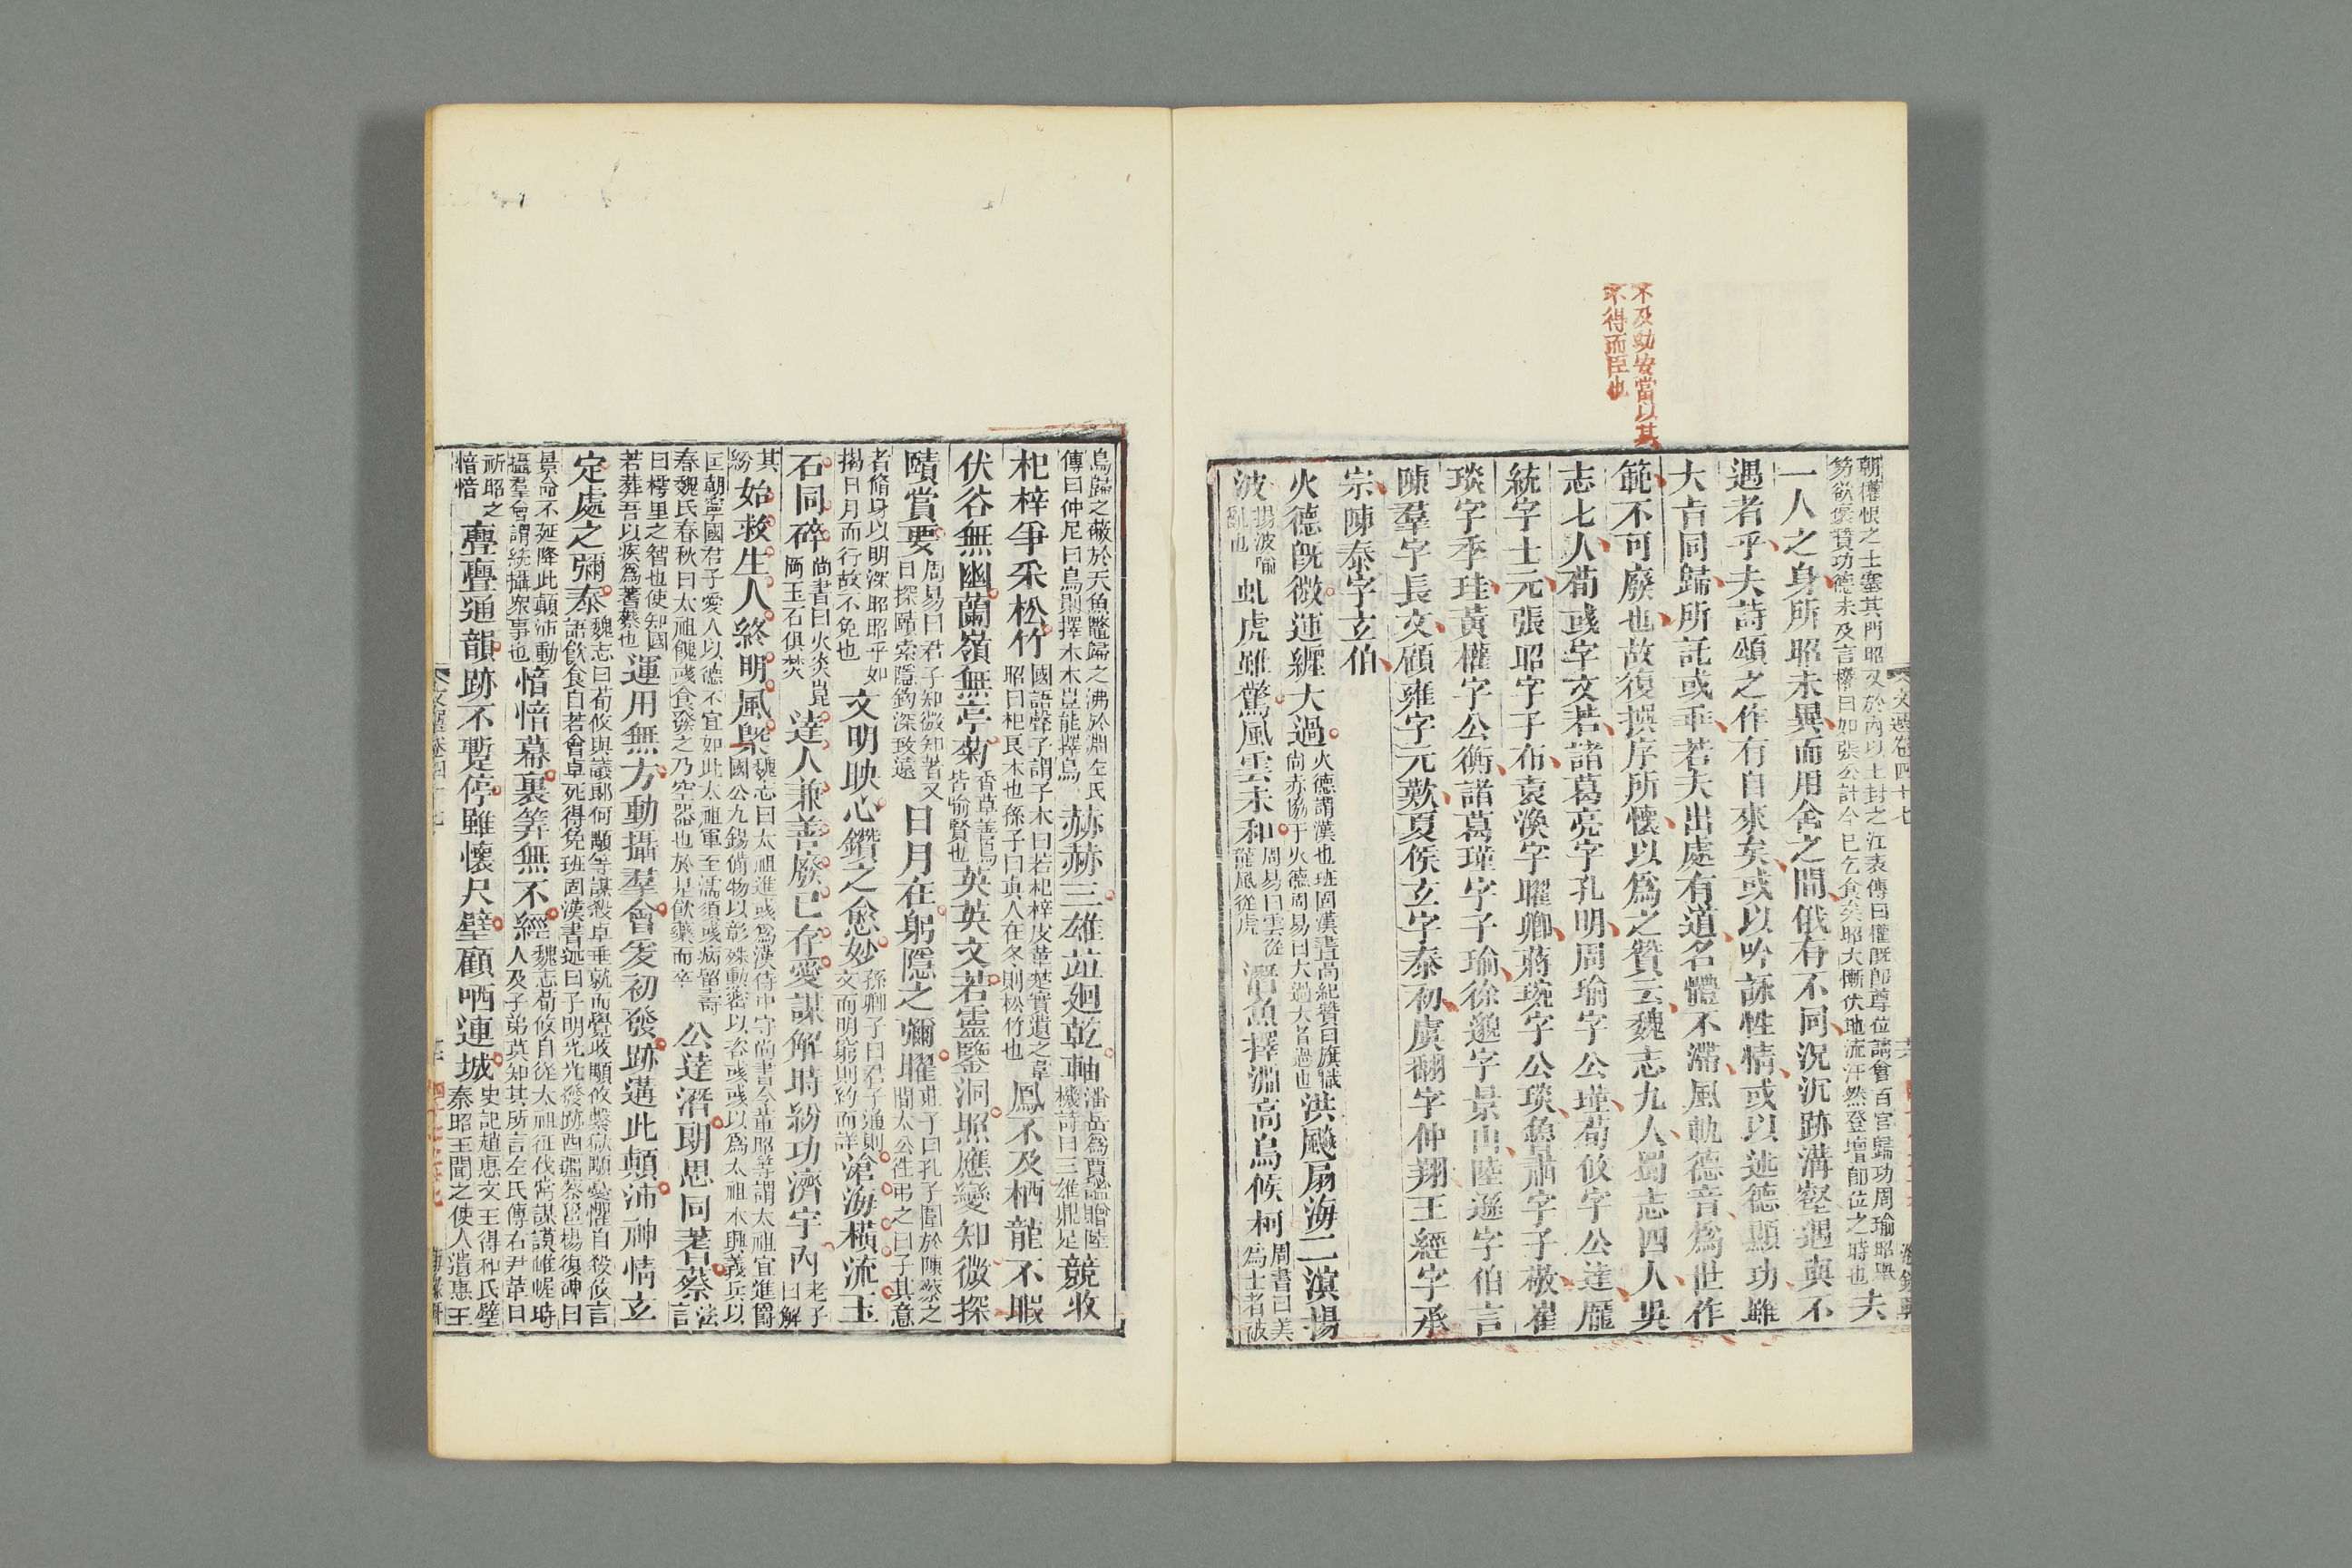 不及勸安當以其
不得而臣也
文選卷四十七
朝權恨之土塞其門昭又於內以土封之江表傳曰權既即尊位請會百官歸功周瑜昭舉
笏欲襃贊功德未及言權曰如張公計今已乞食矣昭大慚伏地流汗然登壇即位之時也夫
一人之身所昭未異而用舍之間俄有不同況沉跡溝壑遇與不
遇者乎夫詩頌之作有自來矣或以吟詠性情或以述德顯功雖
大吉同歸所託或乖若夫出處有道名體不滯風軌德音爲世作
範不可廢也故復撰序所懷以爲之贊云魏志九人蜀志四人吳
志七人荀彧字文若諸葛亮字孔明周瑜字公瑾荀攸字公達龐
統字士元張昭字子布袁渙字曜卿蔣琬字公琰魯肅字子敬崔
琰字季珪黃權字公衡諸葛瑾字子瑜徐邈字景山陸遜字伯言
陳羣字長文顧雍字元歎夏侯玄字泰初虞翻字仲翔王經字承
宗陳泰字玄伯
火德旣微運纏大過火德謂漢也班固漢書高紀贊曰旗幟
尚赤協于火德周易曰大過大者過也洪飈扇海二溟揚
波揚波喻
亂也虬虎雖驚風雲未和周易曰雲從
龍風從虎潛魚擇淵高鳥候柯周書曰美
爲士者敀
鳥歸之蔽於天魚鼈歸之沸於淵左氏
傳曰仲尼曰鳥則擇木木豈能擇鳥赫赫三雄竝廻乾軸潘岳爲賈謐贈陸
機詩曰三雄鼎足競收
杞梓爭采松竹國語聲子謂子木曰若杞梓皮革楚實遺之韋
昭曰杞良木也孫子曰眞人在冬則松竹也鳳不及栖龍不暇
伏谷無幽蘭嶺無亭菊香草善鳥
皆喻賢也英英文若靈鑒洞照應變知微探
賾賞要周易曰君子知微知著又
曰探賾索隱鉤深致遠日月在躬隱之彌曜莊子曰孔子圍於陳蔡之
間太公往弔之曰子其意
者脩身以明深昭昭乎如
揭日月而行故不免也文明映心鑽之愈妙孫卿子曰君子通則
文而明窮則約而詳滄海橫流玉
石同碎尚書曰火炎崑
岡玉石俱焚達人兼善廢已存愛謀解時紛功濟宇內老子
曰解
其
紛始救生人終明風槩魏志曰太祖進彧爲漢侍中守尚書令董昭等謂太祖宜進爵
國公九錫備物以彰殊勳密以咨彧彧以爲太祖本興義兵以
匡朝寧國君子愛人以德不宜如此太祖軍至濡須彧病留壽
春魏氏春秋曰太祖饋彧食發之乃空器也於是飲藥而卒公達潛朗思同蓍蔡法
言
曰樗里之智也使知國
若葬吾以疾爲蓍蔡也運用無方動攝羣會爰初發跡遘此顛沛神情玄
定處之彌泰魏志曰荀攸與議郎何顒等謀殺卓垂就而覺收顒攸繫獄顒憂懼自殺攸言
語飮食自若會卓死得免班固漢書述曰子明光光發跡西疆蔡邕楊復碑曰
景命不延降此顛沛動
攝羣會謂統攝衆事也愔愔幕裏筭無不經魏志荀攸自從太祖征伐常謀謨帷幄時
人及子弟莫知其所言左氏傳右尹革曰
祈昭之
愔愔亹亹通韻跡不蹔停雖懷尺璧顧哂連城史記趙惠文王得和氏璧
秦昭王聞之使人遺惠王
文選卷四十七